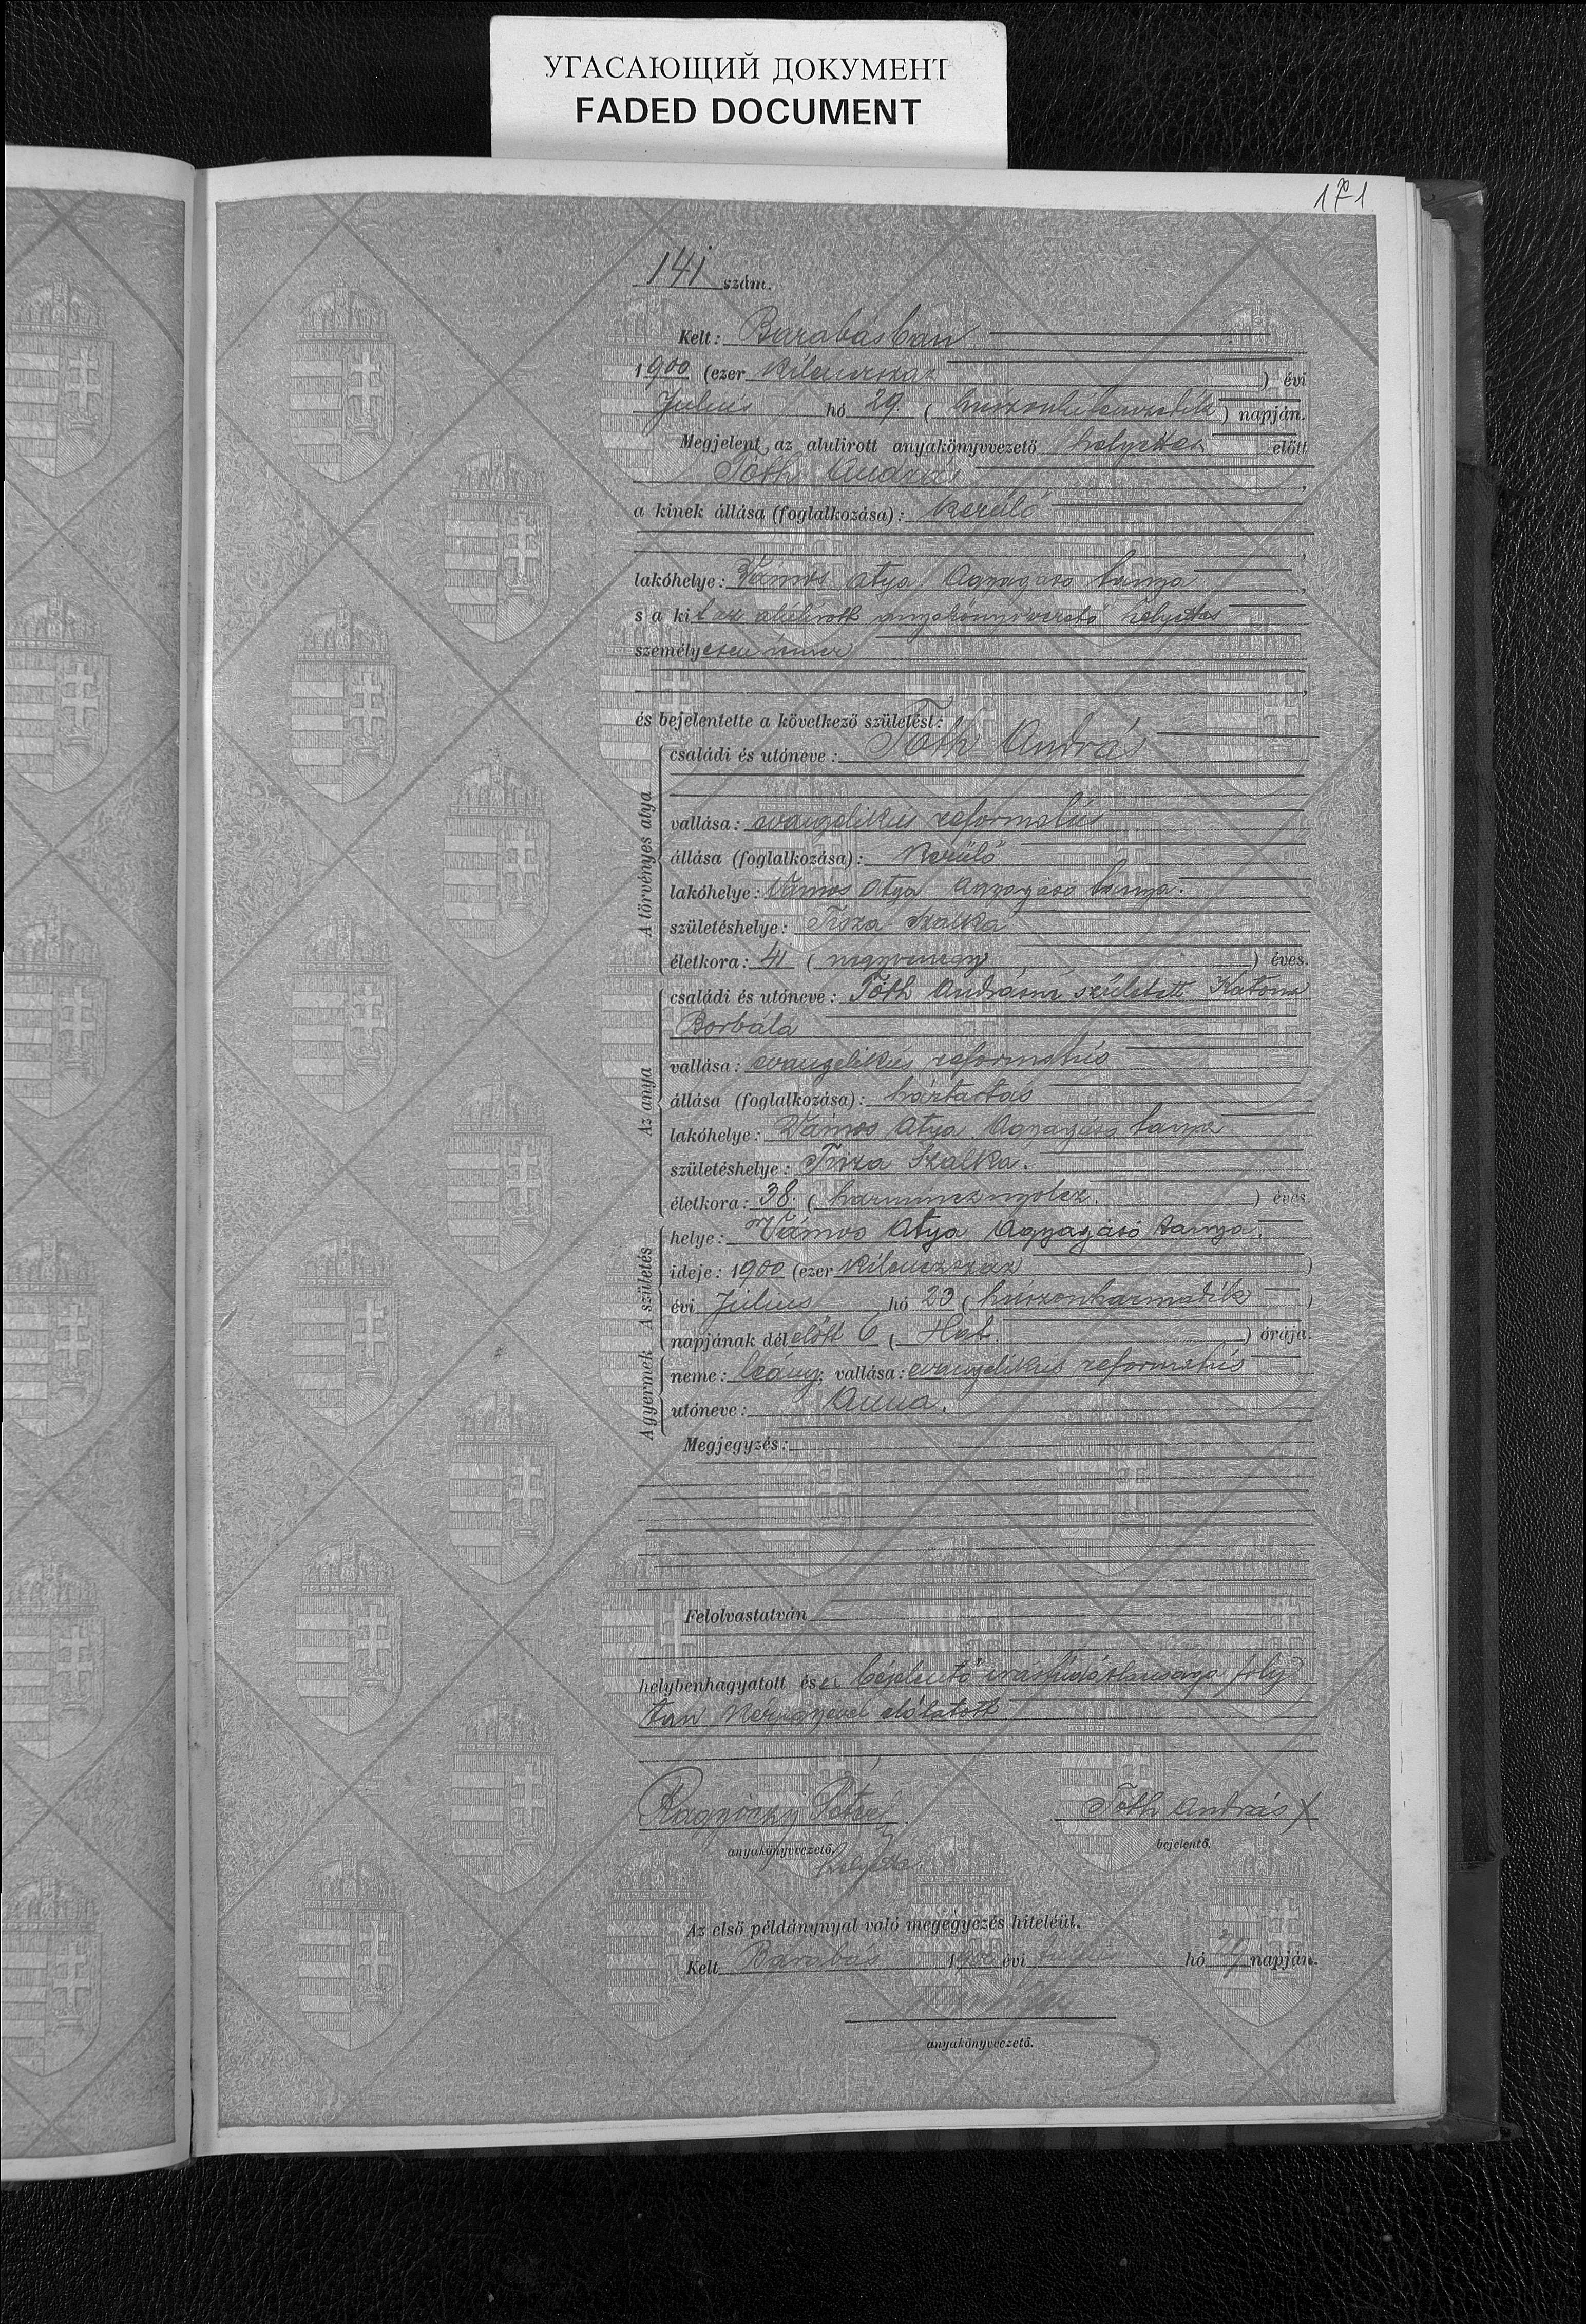 УГАСАЮЩИЙ ДОКУМЕНТ
FADED DOCUMENT
171
141 szám.
Kelt: Barabásban
1900 (ezer kilenczszáz) évi
Julius hó 29. (huszonkilenczedik) napján.
Megjelent az alulirott anyakönyvvezető helyettes előtt
Tóth András,
a kinek állása (foglalkozása): kerülő
lakóhelye: Vámos Atya Agyagásó tanya,
s a kit az alulirott anyakönyvvezető helyettes
személyesen ismer
és bejelentette a következő születést:
A törvényes atya
családi és utóneve: Tóth András
vallása: evangelikus reformatus
állása (foglalkozása): Kerülő
lakóhelye: Vámos Atya Agyagásó tanya.
születéshelye: Tisza Szalka
életkora: 41 (negyvenegy) éves.
Az anya
családi és utóneve: Tóth Andrásné született Katona
Borbála
vallása: evangelikus reformatus
állása (foglalkozása): háztartás
lakóhelye: Vámos Atya Agyagásó tanya
születéshelye: Tisza Szalka.
életkora: 38. (harmincznyolcz.) éves
A születés
helye: Vámos Atya Agyagásó tanya.
ideje: 1900 (ezer kilenczszáz)
évi Július hó 23 (huszonharmadik)
napjának délelőtt 6 (Hat) órája.
A gyermek
neme: leány; vallása: evangelikus reformatus
utóneve: Anna.
Megjegyzés:
Felolvastatván
helybenhagyatott és a bejelentő irástudatlansága foly
tán kézjegyével ellátott
Ragyócky Péter
Tóth András X
anyakönyvvezető,
bejelentő.
helyettes
Az első példánynyal való megegyezés hiteléül.
Kelt Barabás 1900 évi Julius hó 29 napján.
anyakönyvvezető.